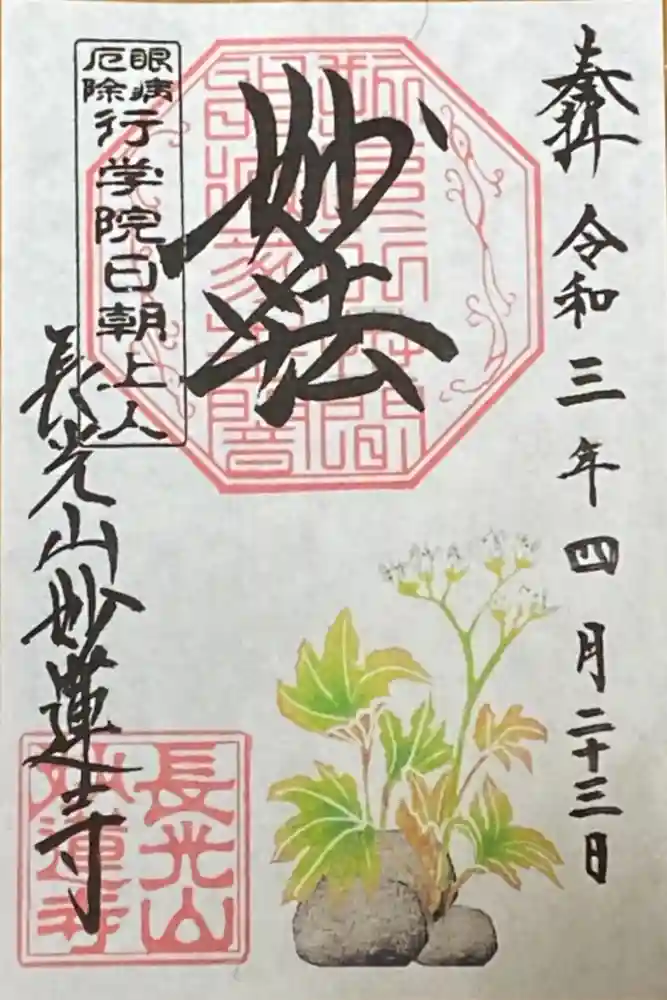 奉拝 令和三年四月二十三日
妙法
眼病
厄除
行学院日朝上人
長光山妙蓮寺
長光山
妙蓮寺